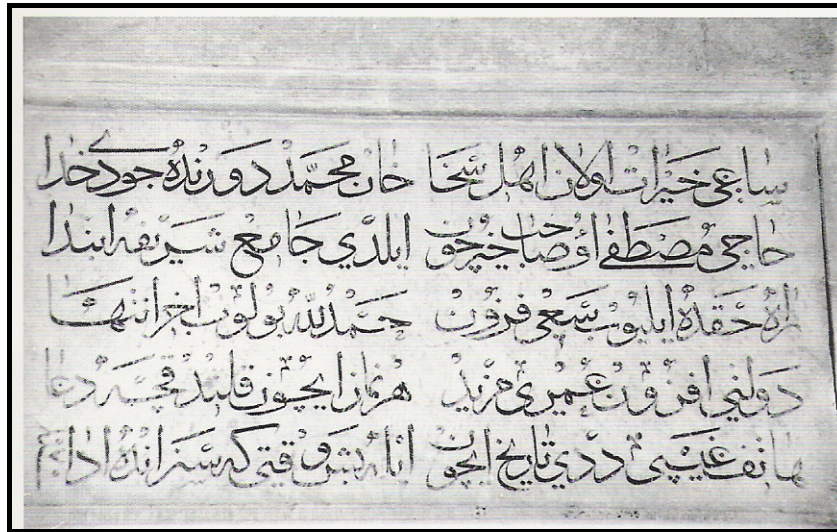 ساعی خیرات اولان اهل سخا خان محمد دورنده جودی خدا
حاجی مصطفی اؤ صاحب خیرچون ایلدی جامع شریفه ابتدا
راه حقده ایلیوب سعی فزون حمد لله بولوب اجرا انتها
دولتی افزون عمری مزید هر نماز ایچون قلیند قچه دعا
هاتف غیبی ددی تاریخ ایچون بش وقتی که سز انده ادا